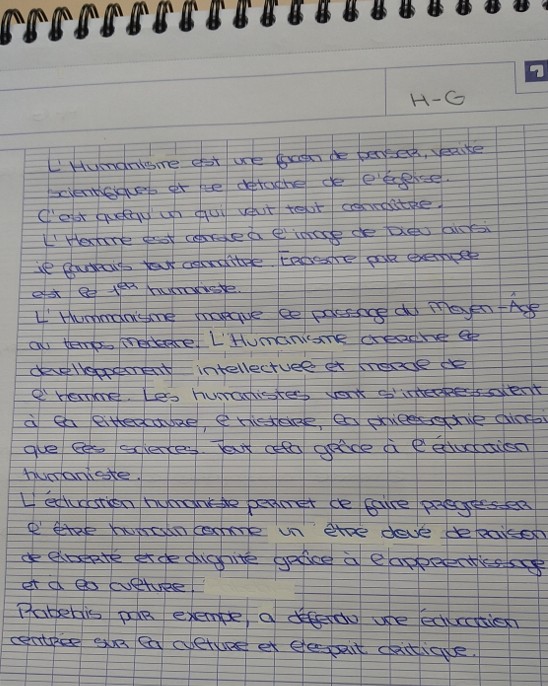 7
H-G
L'Humanisme est une façon de penser, verité
scientifiques et se detache de l'église.
C'est quelqu'un qui veut tout connaître.
L'Homme est consue à l'image de Dieu ainsi
il faudrais tout connaître. Erasme par exemple
est le 1er humaniste.
L'Hummanisme marque le passage du Moyen-Âge
au temps moderne. L'Humanisme cherche le
develloppement intellectuel et morale de
l'Homme. Les humanistes vont s'interressaient
à la litterature, l'histoire, la philosophie ainsi
que les sciences. Tout cela grâce à l'éducation
humaniste.
L'éducation humaniste permet de faire progresser
l'être humain comme un être doué de raison
de liberté et de dignité grâce à l'apprentissage
et à la culture.
Rabelais par exemple, a défendu une éducation
centrée sur la culture et l'esprit critique.